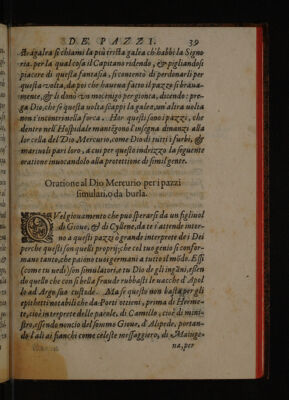 DE' PAZZI. 39
stra galea si chiami la più trista galea ch'habbi la Signo
ria. per la qual cosa il Capitano ridendo, & pigliandosi
piacere di questa fantasia, si contentò di perdonarli per
questa volta, da poi che haueua fatto il pazzo sì braua-
mente, & li donò vn mocenigo per gionta, dicendo: pre-
ga Dio, che se questa volta scappi la galea, vn'altra volta
non t'incontri nella forca. Hor questi sono i pazzi, che
dentro nell'Hospidale mantigono l'insegna dinanzi alla
lor cella del Dio Mercurio, come Dio di tutti i furbi, &
mariuoli pari loro, a cui per questo indrizzo la seguente
oratione inuocandolo alla protettione di simil gente.
Oratione al Dio Mercurio per i pazzi
simulati, o da burla.
QVel giouamento che può sperarsi da vn figliuol
di Gioue, & di Cyllene, da te i' attende inter-
no a questi pazzi o grande interprete de i Dei
perche questi son quelli proprij, che col tuo genio si confor-
mano tanto, che paiono tuoi germani a tutto'l mōdo. Essi
(come tu vedi) son simulatori, e tu Dio de gli ingāni, essen
do quello che con sì bella fraude rubbasti le vacche d'Apol
lo ad Argo suo custode. Ma se questo non basta per gli
epitheti notabili che da Poeti ottieni, prima di Herme-
te, cioè interprete delle parole, di Camillo, cioè di mini-
stro, essendo noncio del sommo Gioue, d'Alipede, portan-
do l'ali ai fianchi come celeste messaggiero, di Maiuge-
na, per